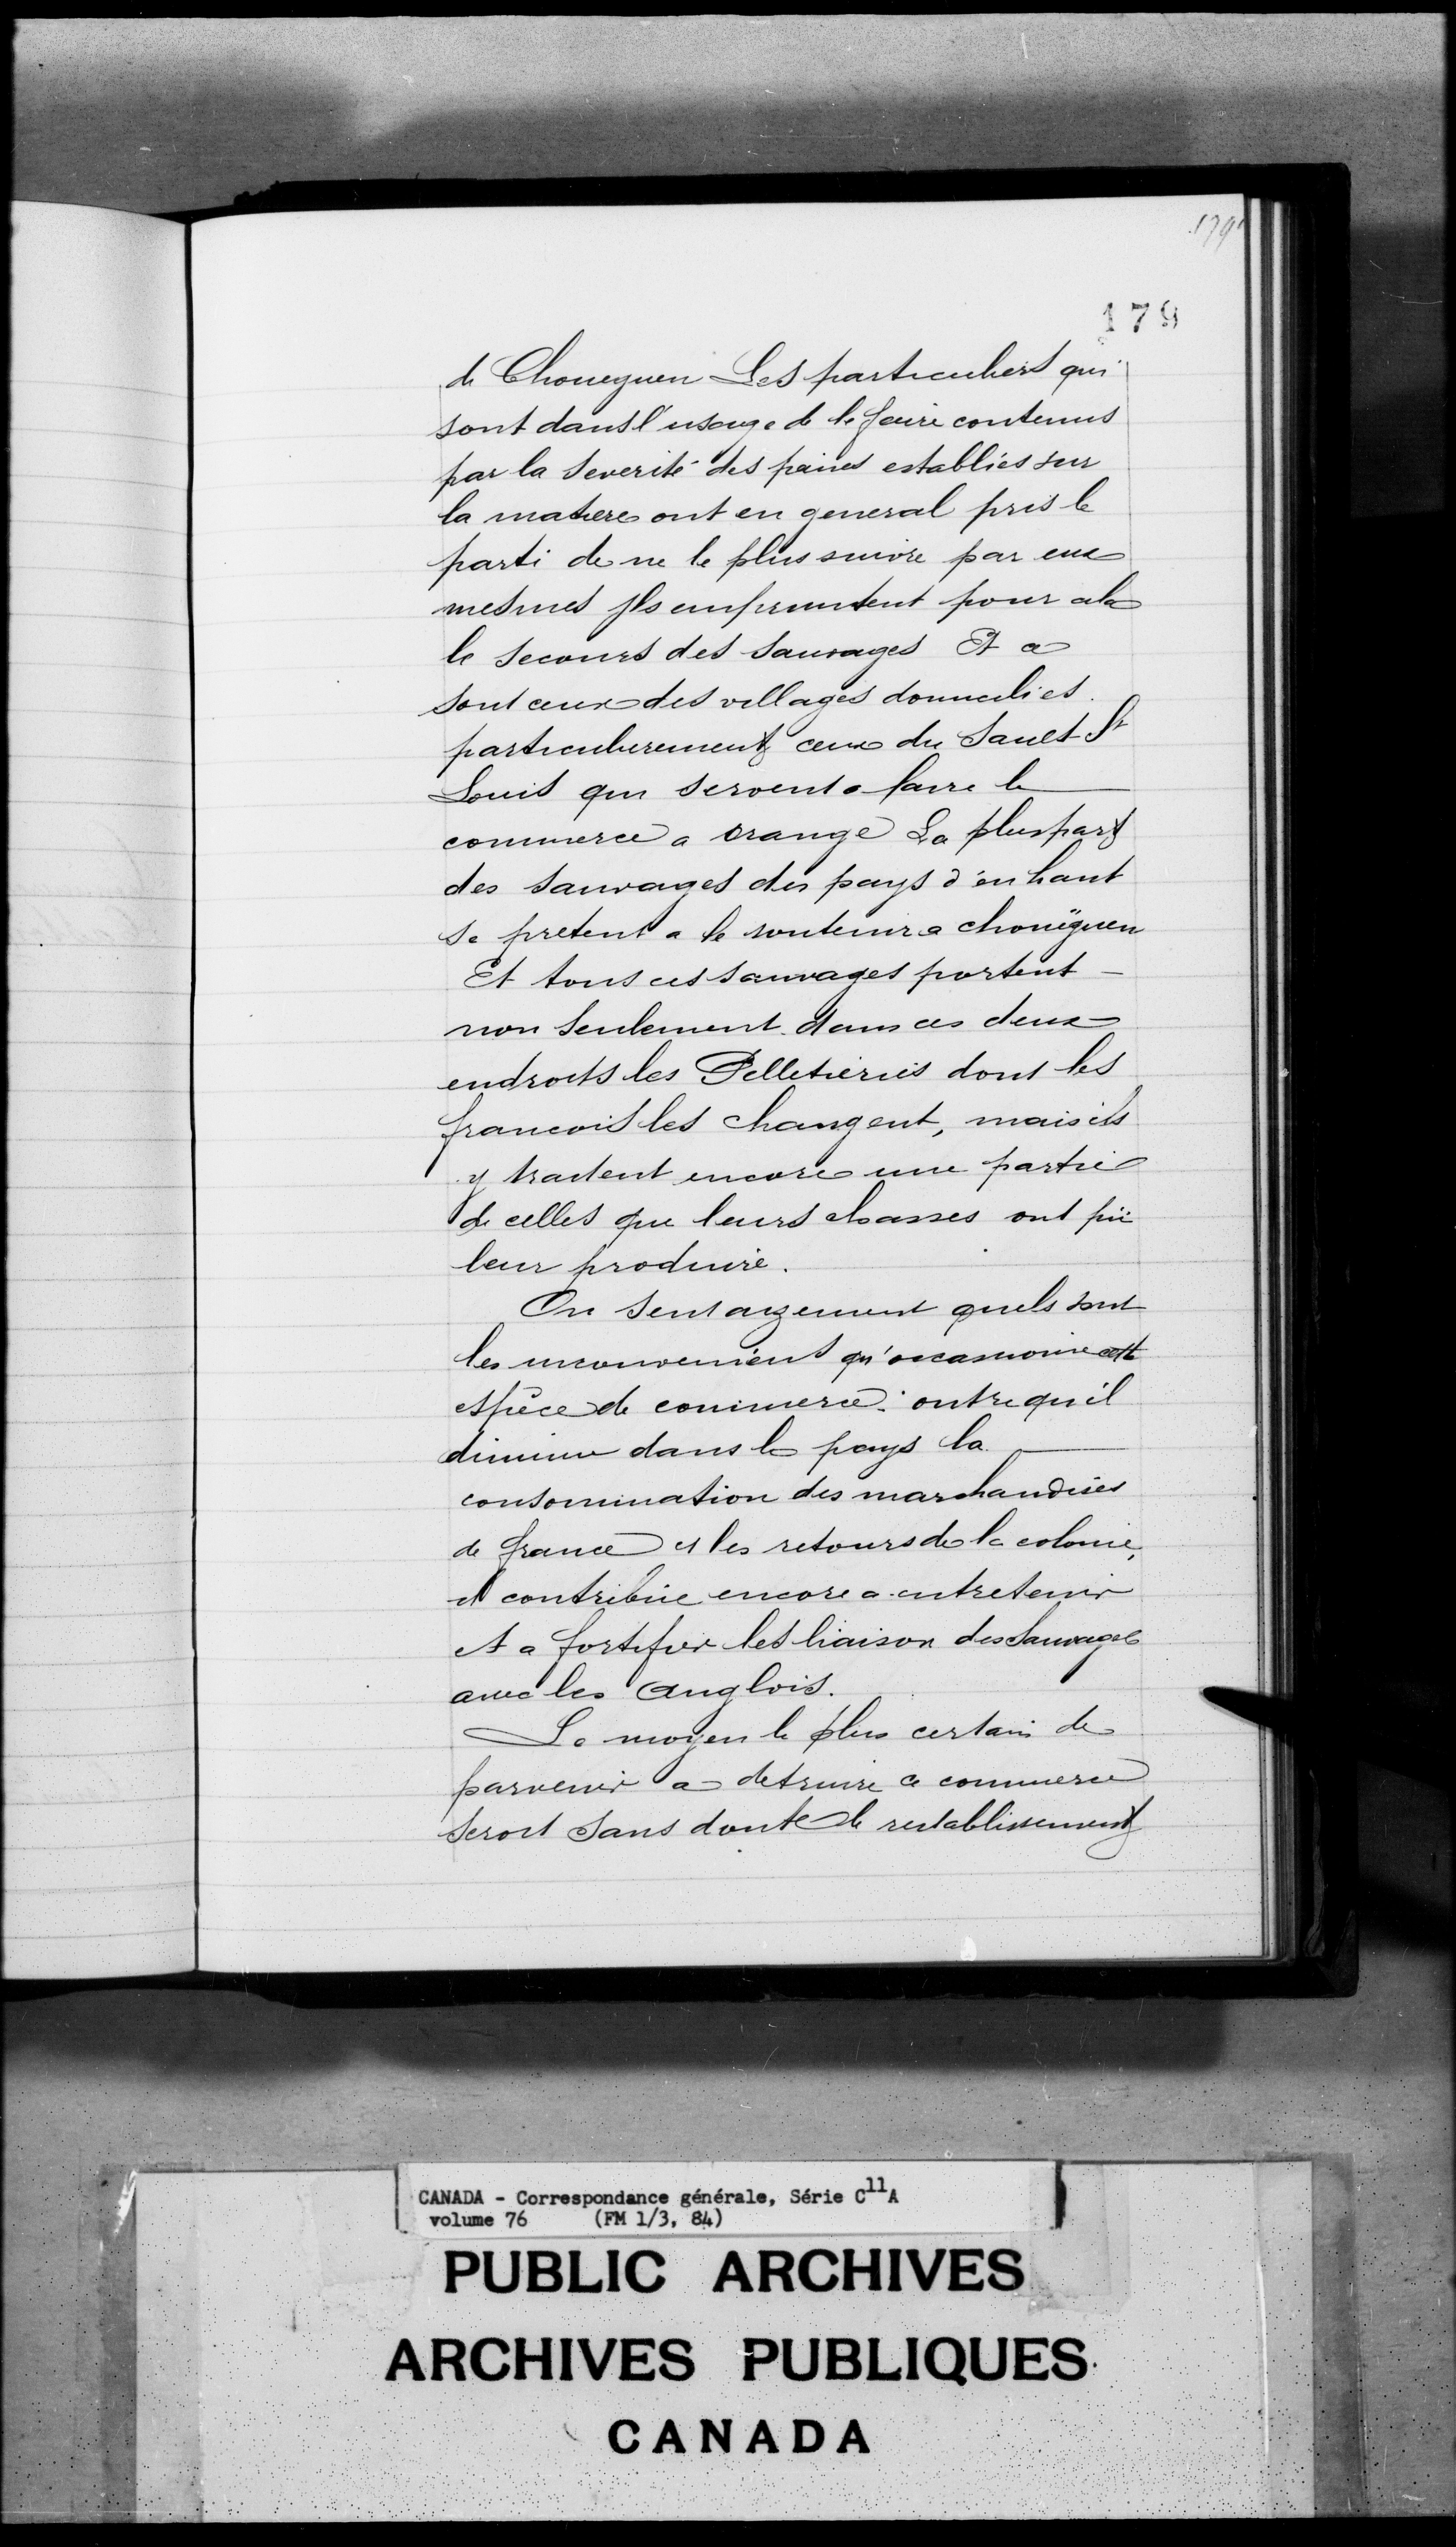 179
179
de Choueguen Les particuliers qui
sont dans l'usage de le faire contenus
par la severité des peines establies sur
la matiere ont en general pris le
parti de ne le plus suivre par eux
mesmes Ils empruntent pour cela
le secours des sauvages Et ce
sont ceux des villages domiciliés
particulierement ceux du Sault St
Louis qui servent a faire le
commerce a orange La pluspart
des sauvages des pays d'en haut
se pretent a le soutenir a choüeguen
Et tous ces sauvages portent
non seulement dans ces deux
endroits les Pelleteries dont les
francois les chargent, mais ils
y traitent encore une partie
de celles que leurs chasses ont pü
leur produire.
On sent aizement quels sont
les inconvenient qu'occasionne cette
espece de commerce: outre qu'il
diminue dans le pays la
consommation des marchandises
de france et les retours de la colonie,
il contribue encore a entretenir
et a fortifier les liaison des Sauvages
avec les anglois.
Le moyen le plus certain de
parvenir a detruire ce commerce
seroit sans doute le restablissement
CANADA - Correspondance générale, Série C11A
volume 76 (FM 1/3, 84)
PUBLIC ARCHIVES
ARCHIVES PUBLIQUES
CANADA